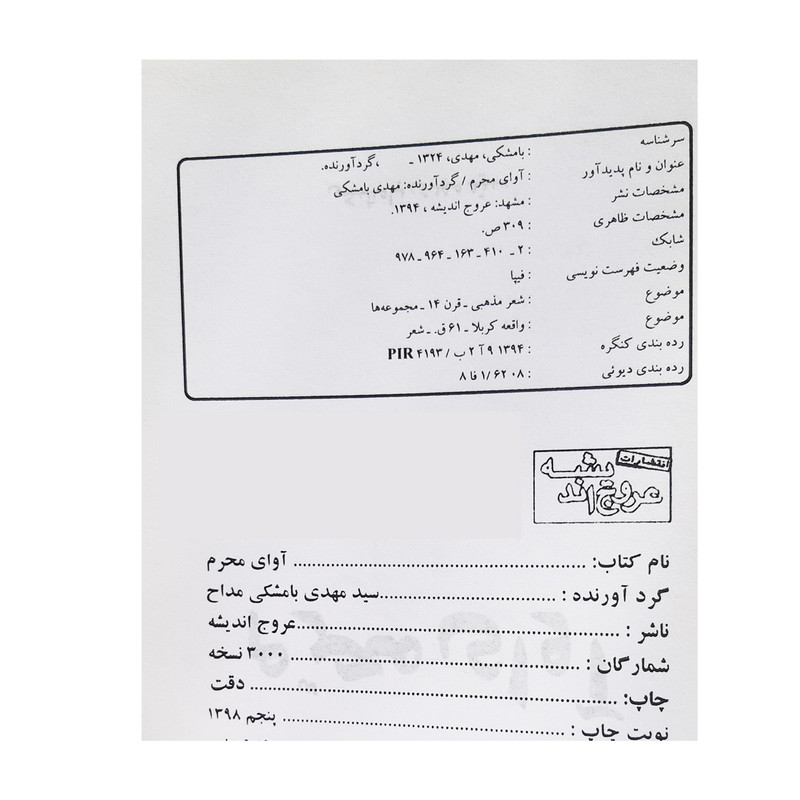 سرشناسه : بامشکی، مهدی، ۱۳۲۴ ـ ، گردآورنده.
عنوان و نام پدیدآور : آوای محرم / گردآورنده: مهدی بامشکی
مشخصات نشر : مشهد: عروج اندیشه ، ۱۳۹۴.
مشخصات ظاهری : ۳۰۹ ص.
شابک : ۲ ـ ۴۱۰ ـ ۱۶۳ ـ ۹۶۴ ـ ۹۷۸
وضعیت فهرست نویسی : فیپا
موضوع : شعر مذهبی ـ قرن ۱۴ ـ مجموعه‌ها
موضوع : واقعه کربلا ـ ۶۱ ق. ـ شعر
رده بندی کنگره : ۱۳۹۴ ۹ آ ۲ ب / PIR ۴۱۹۳
رده بندی دیوئی : ۰۸ ۶۲ /۱ فا ۸
انتشارات
عروج اندیشه
نام کتاب: ........ آوای محرم
گرد آورنده : ........ سید مهدی بامشکی مداح
ناشر : ........ عروج اندیشه
شمارگان : ........ ۳۰۰۰ نسخه
چاپ: ........ دقت
نوبت چاپ : ........ پنجم ۱۳۹۸